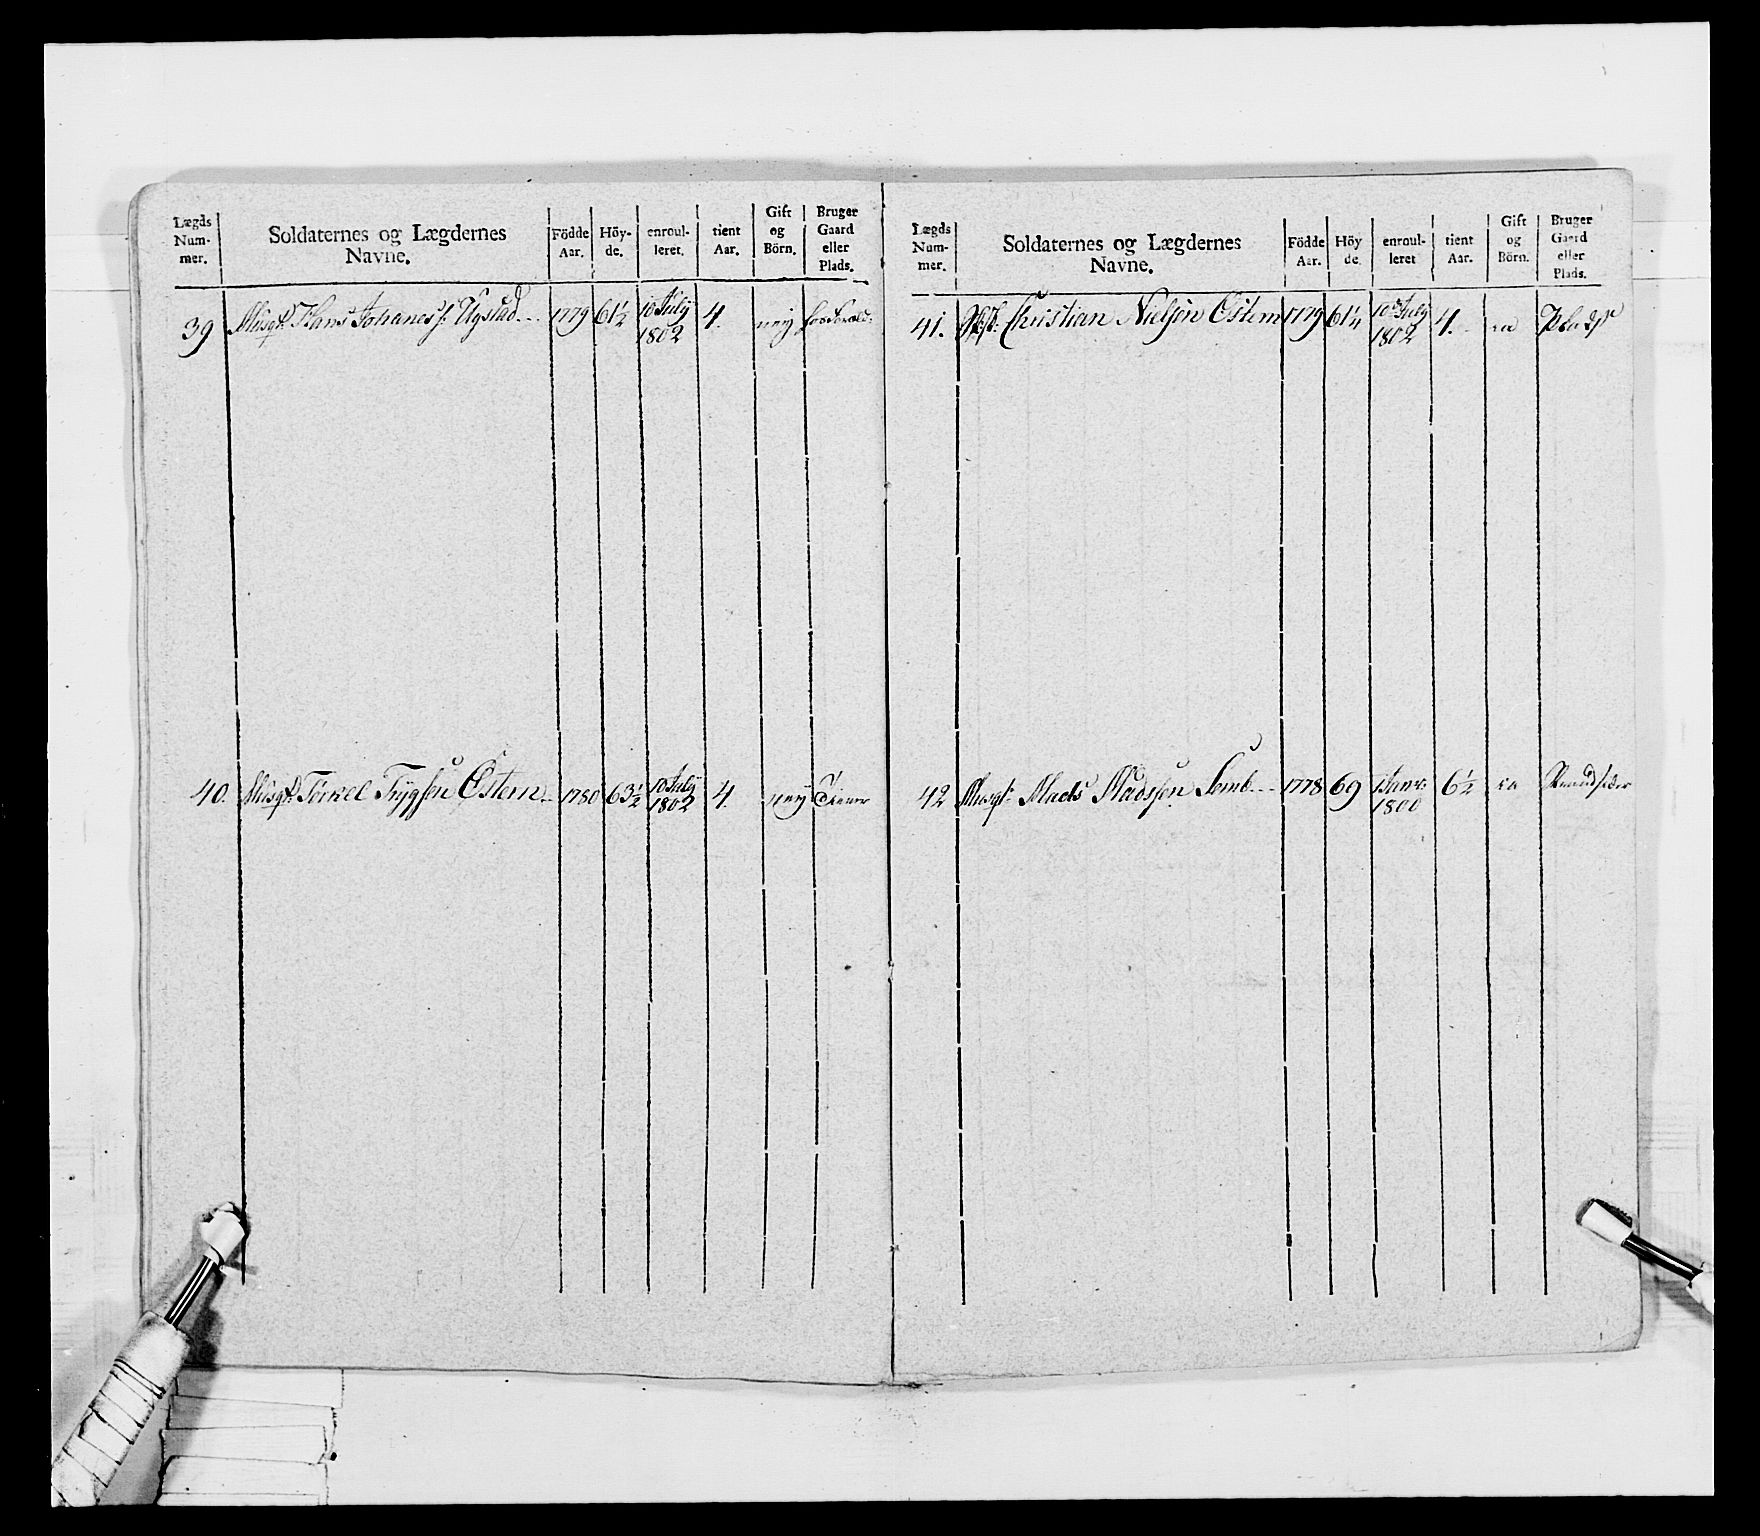 Lægds Num- mer. Soldaternes og Lægdernes Navne. Födde Aar. Höy- de. enroul- leret. tient Aar. Gift og Börn. Bruger Gaard eller Plads.
39 Musqt. Hans Johanes s. Ugstad 1779 61½ 10 July 1802 4. neij
40. Musqt. Torkel Trygsen Östern 1780 63½ 10 July 1802 4. neij Tiener
Lægds Num- mer. Soldaternes og Lægdernes Navne. Födde Aar. Höy de. enroul- leret tient Aar. Gift og Börn. Bruger Gaard eller Plads.
41. Christian Nielsen Östern 1779 61¼ 10de July 1802 4. ja Plads
42 Musqt. Mads Madssen Semb 1778 69 1 Janr. 1800 6½ ja Strandsider